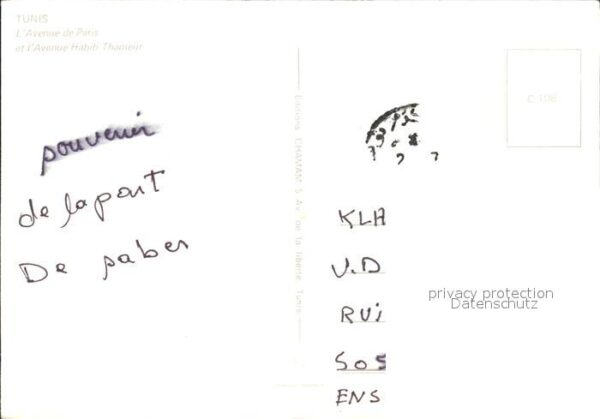 TUNIS
L'Avenue de Paris
et l'Avenue Habib Thameur
souvenir
de la part
De saber
Editions CHAMAM 5 Av. de la liberté Tunis
C 106
KLA
V.D
RUi
SOS
ENS
privacy protection
Datenschutz